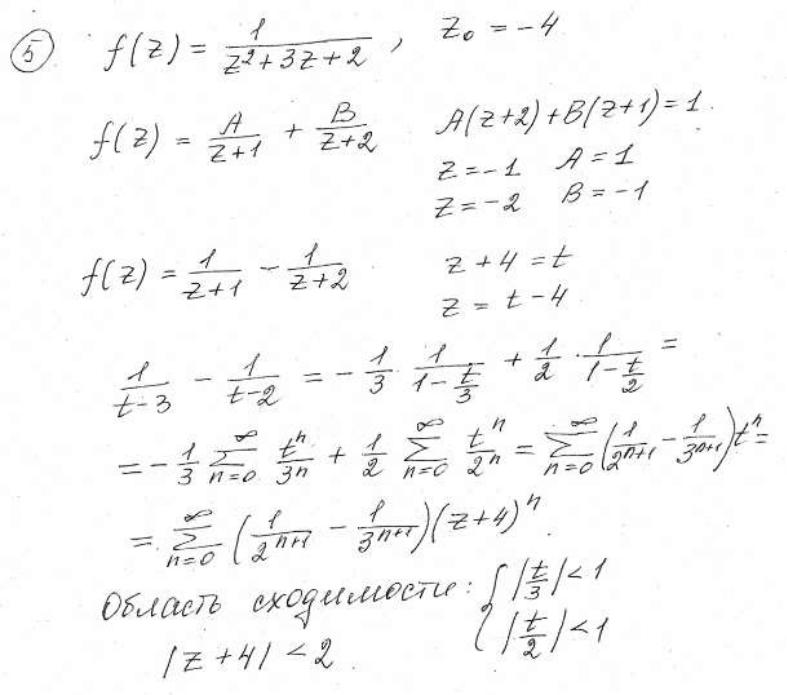 5 f(z) = 1/(z²+3z+2), z₀ = -4
f(z) = A/(z+1) + B/(z+2) A(z+2)+B(z+1)=1.
z=-1 A=1
z=-2 B=-1
f(z) = 1/(z+1) - 1/(z+2) z+4=t
z = t-4
1/(t-3) - 1/(t-2) = -1/3 · 1/(1-t/3) + 1/2 · 1/(1-t/2) =
= -1/3 ∑_{n=0}^{∞} tⁿ/3ⁿ + 1/2 ∑_{n=0}^{∞} tⁿ/2ⁿ = ∑_{n=0}^{∞} (1/2ⁿ⁺¹ - 1/3ⁿ⁺¹)tⁿ =
= ∑_{n=0}^{∞} (1/2ⁿ⁺¹ - 1/3ⁿ⁺¹)(z+4)ⁿ
Область сходимости: { |t/3|<1
|t/2|<1
|z+4|<2